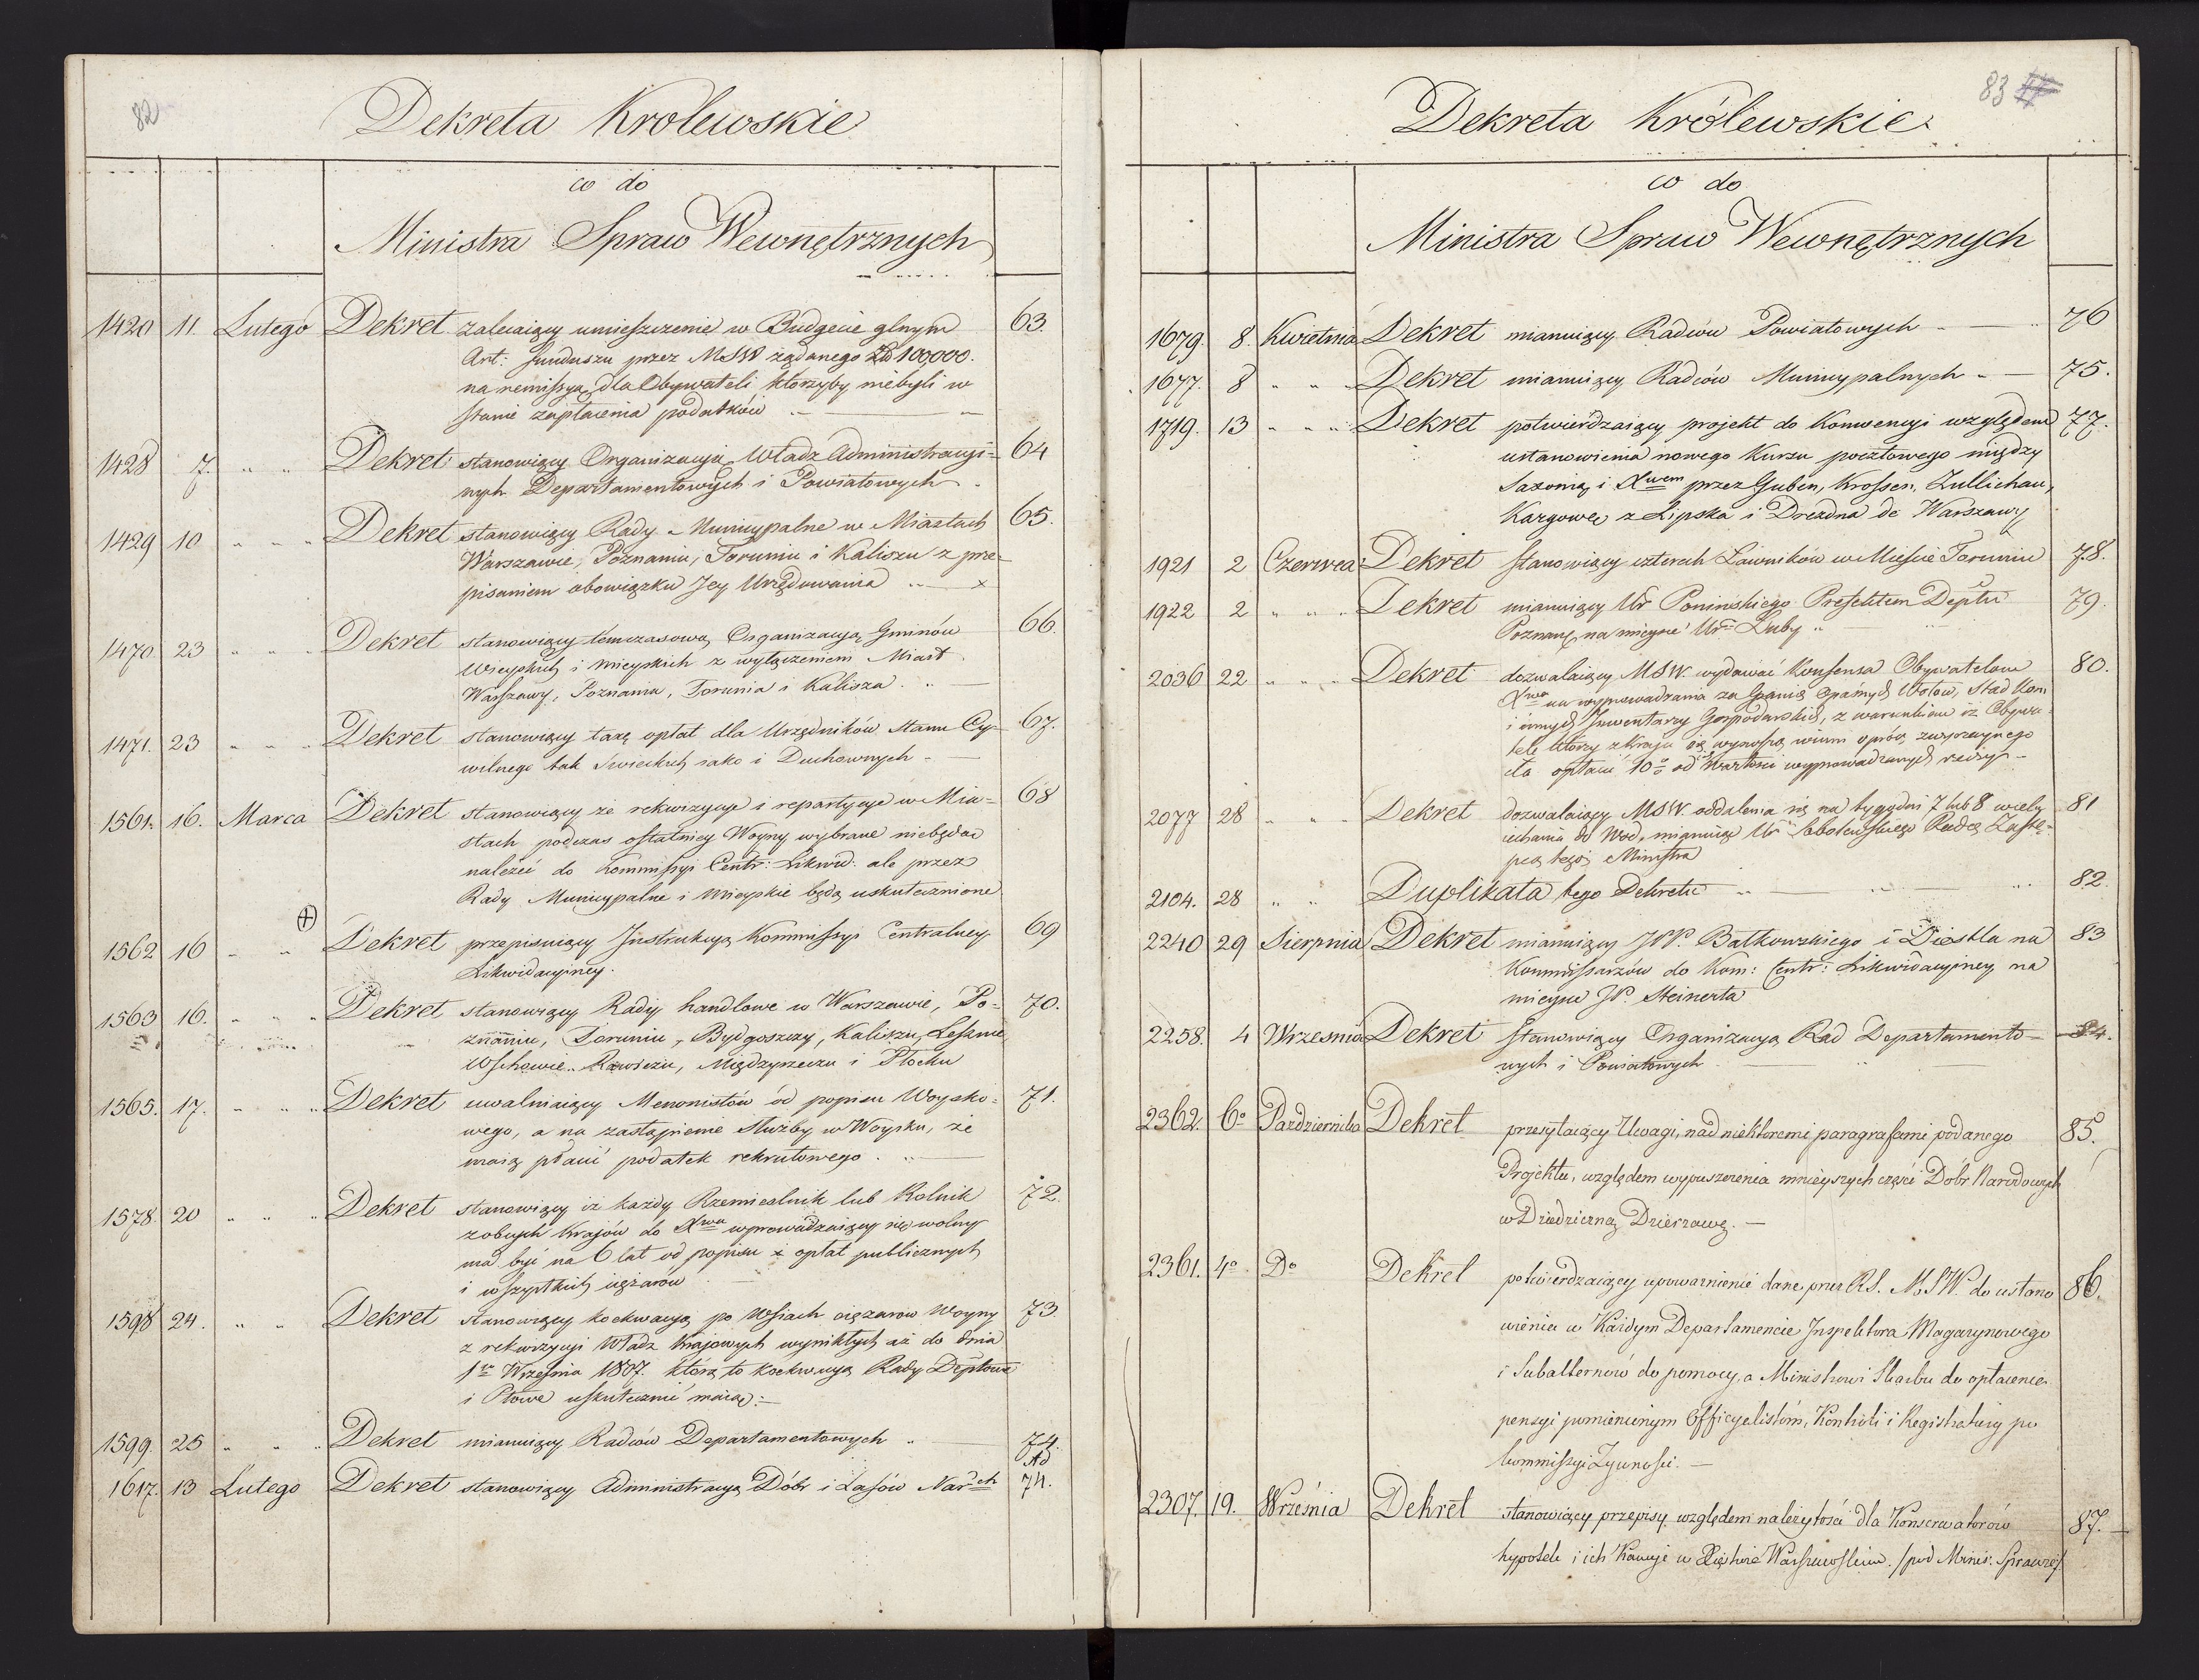 82
Dekreta Krolewskie
co do
Ministra Spraw Wewnętrznych
1420 11. Lutego Dekret zalecaiący umieszczenie w Budgecie glnym 63.
Art: funduszu przez MSW żądanego Zł 100000.
na remissyą dla Obywateli którzyby niebyli w
stanie zapłacenia podatków
1428 7. " " Dekret stanowiący Organizacyią Władz Administracyi= 64
nych Departamentowych i Powiatowych
1429 10 " " " Dekret stanowiący Rady Municypalne w Miastach 65.
Warszawie, Poznaniu, Toruniu i Kaliszu z prze-
pisaniem obowiązku Jey Urzędowania " — x
1470 23 " " " Dekret stanowiący témczasową Organizacyą Gminów 66.
Wieyskich i Mieyskich z wyłączeniem Miast
Warszawy, Poznania, Torunia i Kalisza. "
1471. 23 " " " Dekret stanowiący taxę opłat dla Urzędników Stanu Cy- 67.
wilnego tak Swieckich iako i Duchownych -
1561. 16. Marca Dekret stanowiący że rekwizycye i repartycye w Mia= 68
stach podczas ostatniey Woyny wybrane niebędac
należeć do Kommissyi Centr: Likwid: ale przez
Rady Municypalne i Mieyskie będą uskutecznione
1562 16 " " Dekret przepisuiący Instrukcyą Kommissyi Centralney 69
Likwidacyiney.
1563 16. " " " Dekret stanowiący Rady handlowe w Warszawie, Po= 70.
znaniu, Toruniu, Bydgoszczy, Kaliszu, Lesznie
Wschowie, Rawiczu, Międzyrzeczu i Płocku
1565. 17. " " " Dekret uwalniaiący Menonistów od popisu Woysko= 71.
wego, a na zastąpienie Służby w Woysku, że
maią płacić podatek rekrutowego. "
1578. 20 " " " Dekret stanowiący iż każdy Rzemieslnik lub Rolnik 72.
z obcych Krajów do Xwa wprowadzaiący się wolny
ma być na 6 lat od popisu i opłat publicznych
i wszystkich ciężarów
1598 24. " " Dekret stanowiący koekwacyą po Wsiach ciężarów Woyny 73
z rekwizycyi Władz Krajowych wynikłych aż do dnia
1go Września 1807. którą to koekwacyą Rady Deptowe
i Ptowe uskutecznić maią:—
1599. 25 " " " Dekret mianuiący Radców Departamentowych " 74.
Ad
1617. 13 Lutego Dekret stanowiący Administracyą Dóbr i Lasów Narodch 74.
83
Dekreta Królewskie
co do
Ministra Spraw Wewnętrznych
1679. 8. Kwietnia Dekret mianuiący Radców Powiatowych — 76
1677. 8 " " " Dekret mianuiący Radców Municypalnych " — 75.
1719. 13 " " " Dekret potwierdzaiący projekt do Konwencyi względem 77.
ustanowienia nowego Kursu pocztowego między
Saxonią i Xwem przez Guben, Krossen, Zullichau,
Kargowę z Lipska i Drezdna do Warszawy
1921 2 Czerwca Dekret stanowiący czterech Ławników w Mieście Toruniu 78.
1922 2 " " " Dekret mianuiący Ur Ponińskiego Prefektem Deptu 79.
Poznanę na mieysce Ur Łuby "
2036 22 " " " Dekret dozwalaiący MSW. wydawać Konsensa Obywatelom 80.
Xwa na wyprowadzania za Granicę Opaśnych Wołow, Stad Kon
i innych Inwentarzy Gospodarskich, z warunkiem iż Obywa-
tele którzy z Kraju się wynoszą winni oprócz zwyczaynego
cła opłacić 10% od Wartosci wyprowadzonych rzeczy -
2077 28 " " Dekret dozwalaiący MSW. oddalenia się na tygodni 7 lub 8 w celu
81
iechania do Wod, mianuiąc Ur Sobolewskiego Radcę Zastę-
pcą tegoż Ministra
2104. 28 " " Duplikata tego Dekretu " — " — " 82.
2240 29 Sierpnia Dekret mianuiący JPP. Batkowskiego i Diestla na 83
Kommissarzów do Kom: Centr: Likwidacyiney na
mieysce JP. Steinerta
2258. 4 Wrzesnia Dekret stanowiący Organizacyą Rad Departamento- 84.
wych i Powiatowych
2362. 6o Pazdziernika Dekret przesyłaiący Uwagi, nad niektoremi paragrafami podanego 85.
Projektu, względem wypuszczenia mnieyszych części Dóbr Narodowych
w Dziedziczną Dzierzawę. —
2361. 4o Do Dekret potwierdzaiący upoważnienie dane przez R.S. MSW. do ustano 86.
wienia w Każdym Departamencie Inspektora Magazynowego
i Subalternow do pomocy, a Ministrowi Skarbu do opłacenia
pensyi pomienionym Officyalistóm, Kontroli i Registratury po
Kommissyi Żywności. —
2307. 19. Września Dekret stanowiący przepisy względem należytości dla Konserwatorów 87.
hypotek i ich Kaucyi w Xięstwie Warszawskiem. /pod Minis: Sprawied/